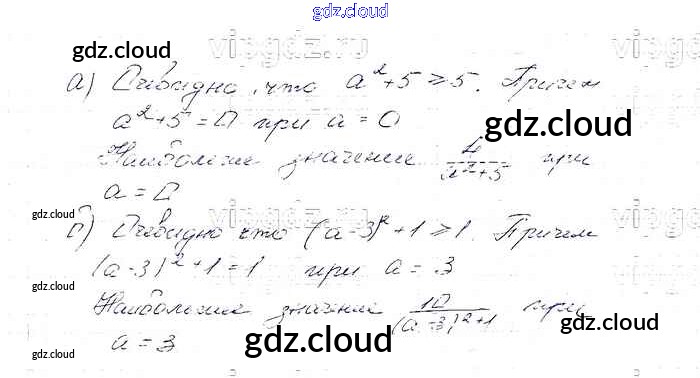 gdz.cloud
gdz.cloud vipgdz.ru vipgdz.ru
а) Очевидно, что a²+5 ≥ 5. Причем
a²+5 = 0 при a = 0
gdz.cloud
Наибольшее значение 4/(a²+5) при
a = 0
gdz.cloud vipgdz.ru vipgdz.ru vipgdz.ru
б) Очевидно что (a-3)²+1 ≥ 1. Причем
(a-3)²+1 = 1 при a = 3
gdz.cloud
Наибольшее значение 10/((a-3)²+1) при
a = 3
gdz.cloud
gdz.cloud
gdz.cloud